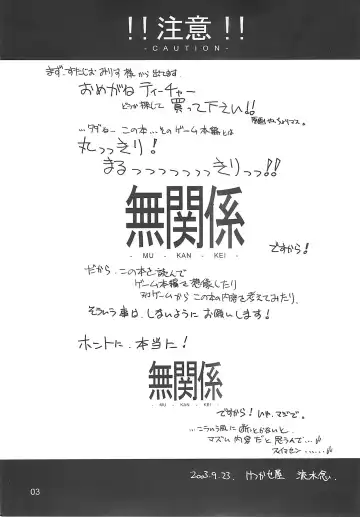 !!注意!!
- CAUTION -
まず、すたじおみりす様から出てます
おめがねティーチャー
どうか探して買って下さい!!
…タダねー この本…そのゲーム本編とは
丸っっきり!
まるっっっっっっっきりっっ!!
無関係
- MU - KAN - KEI -
ですから!
だから、この本を読んで
ゲーム本編を想像したり
ゲームから この本の内容を考えてみたり、
そういう事は、しないようにお願いします!
ホントに、本当に!
無関係
- MU - KAN - KEI -
ですから! いや、マジで。
…こういう風に断っとかないと
マズい内容だと思うんで…
スイマセン……
2003.9.23.
03